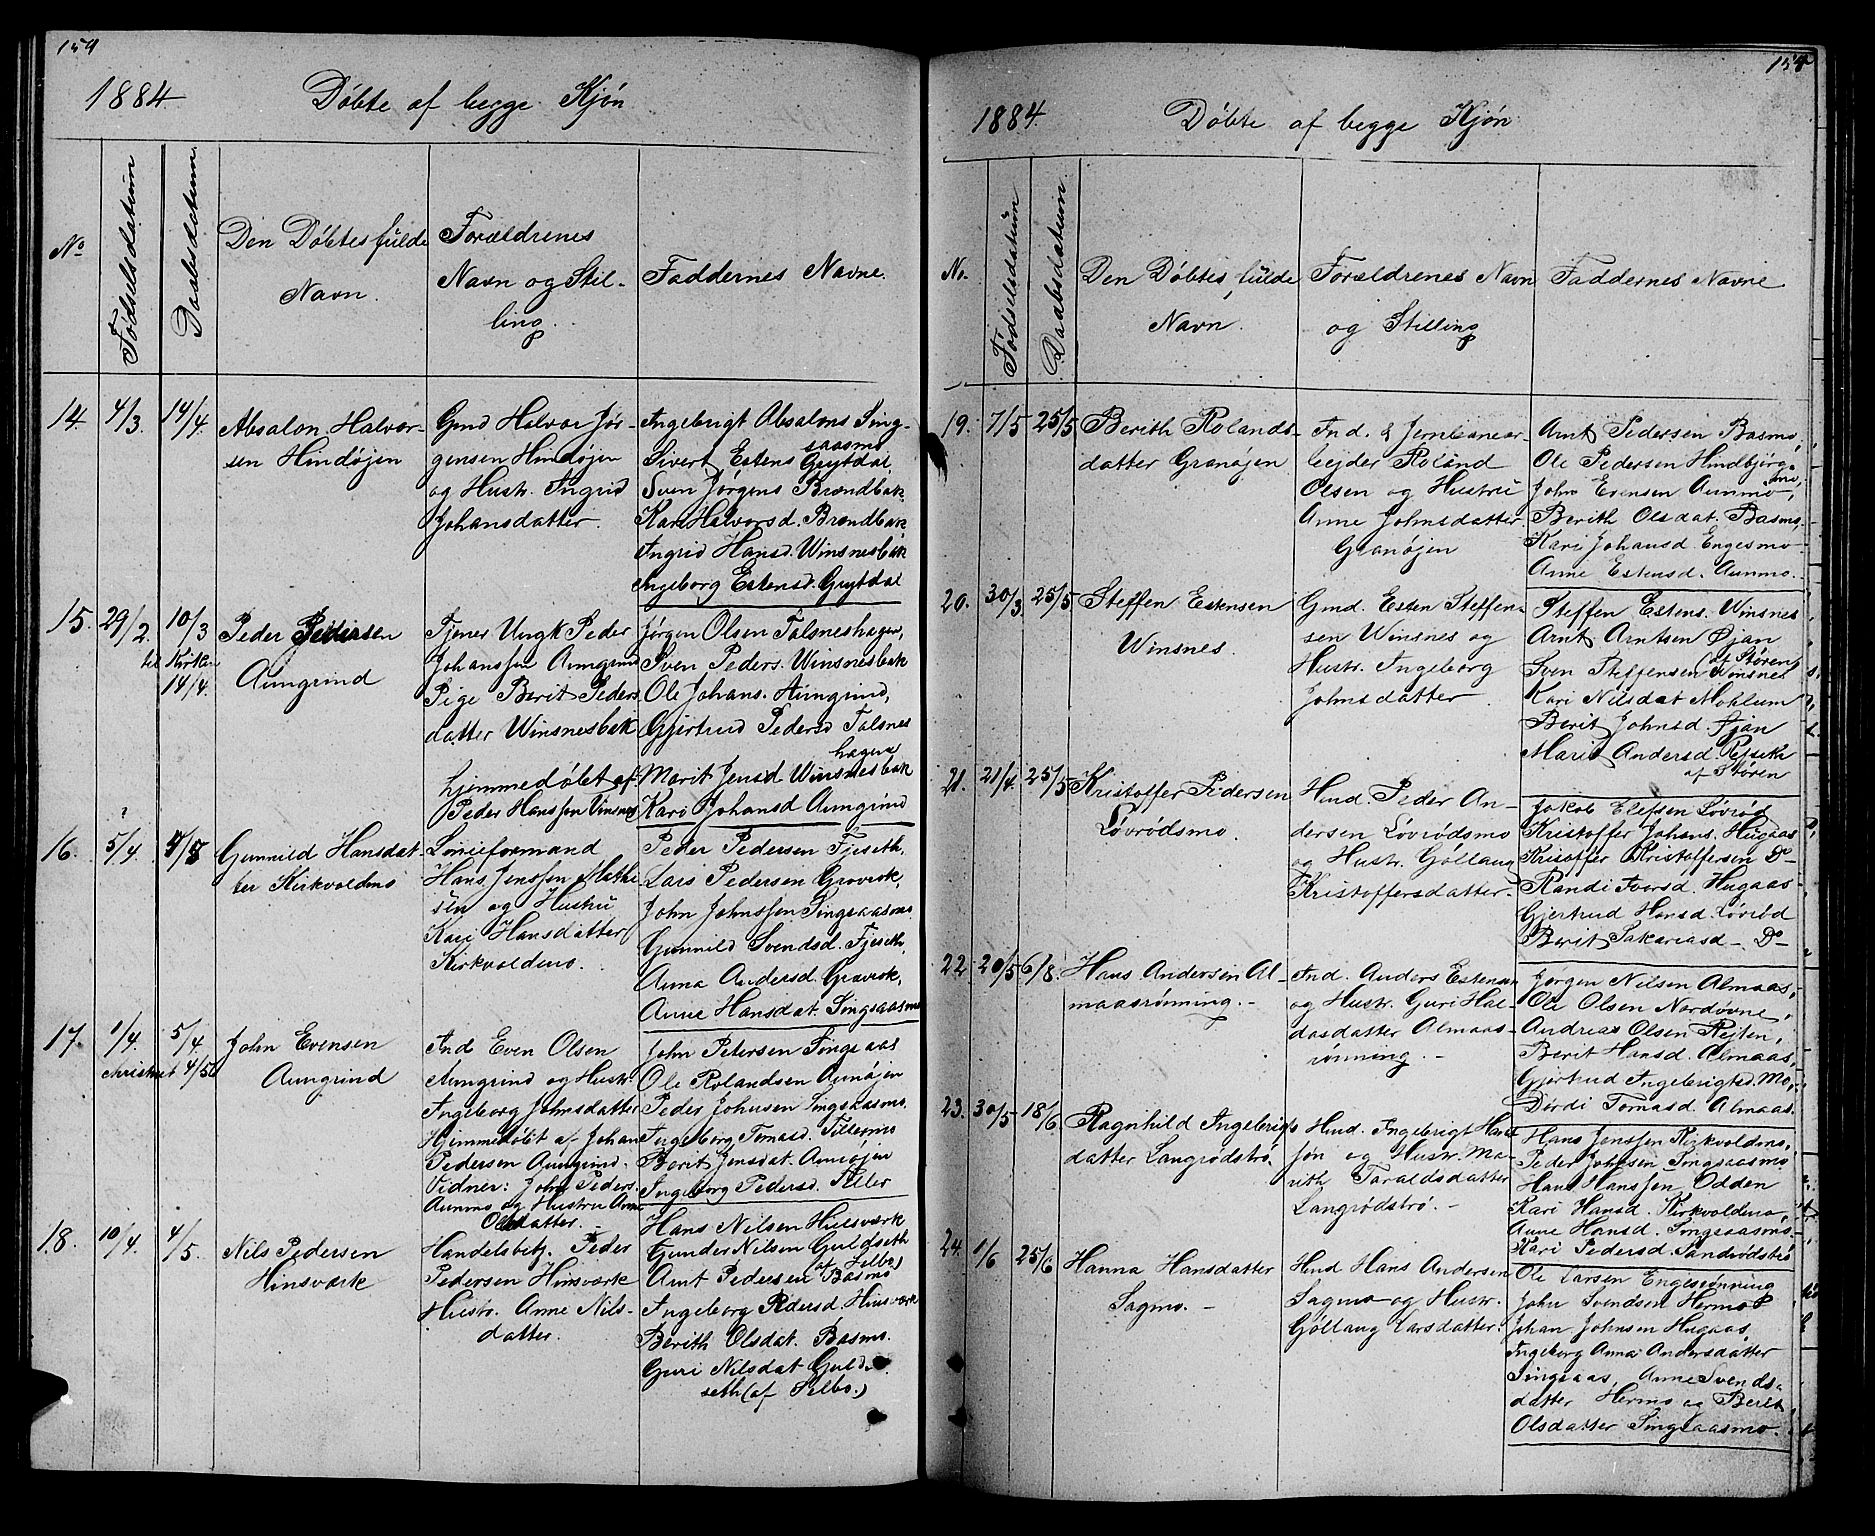 154
1884 Döbte af begge Kjön
No
Fødselsdatum
Daabsdatum
Den Döbtes fulde
Navn.
Forældrenes
Navn og Stil-
ling.
Faddernes Navne.
14. 4/3. 14/4.
Absalon Halvor-
sen Hindöjen
Gmd Halvor Jör-
gensen Hindöjen
og Hustr. Ingrid
Johansdatter.
Ingebrigt Absalons Sing-
saasmo
Sivert Estens Grytdal,
Sven Jörgens Brændbak
Kari Halvorsd. Brændbak
Ingrid Hansd. Winsnesbak
Ingeborg Estensd. Grytdal
15. 29/2. 10/3
til Kirken
14/4.
Peder Pedersen
Aungrind
Tjener Ungk Peder
Johanssen Aungrind
Pige Berit Peders
datter Winsnesbak
hjemmedöbt af
Peder Hanssen Vinsnes
Jörgen Olsen Talsneshagen,
Sven Peders. Winsnesbak
Ole Johans. Aungrind,
Gjertrud Pedersd Talsnes
hagen
Marit Jensd Winsnesbak
Kari Johansd Aungrind
16. 5/4.
Gunnild Hansdat-
ter Kirkvoldmo
Linieformand
Hans Jenssen Mathi
sen og Hustru
Kari Hansdatter
Kirkvoldmo.
Peder Pedersen Fjeseth.
Lars Pedersen Gravrok,
John Johnssen Singsaasmo
Gunnild Svendsd. Fjeseth,
Anna Andersd. Gravrok,
Anne Hansdat. Singsaasmo
17. 1/4. 5/4.
christnet 4/5
John Evensen
Aungrind
Ind Even Olsen
Aungrind og Hustr.
Ingeborg Johnsdatter
Hjemmedöbt af Johan
Pedersen Aungrind.
Vidner: John Peders.
Aunmo og Hustru Anne
Olsdatter. -
John Petersen Singsaas
Ole Rolandsen Aunöjen
Peder Johnsen Singsaasmo.
Ingeborg Tomasd. Tillermo
Berit Jensdat. Aunöjen
Ingeborg Pedersd. Tiller
18. 10/4. 4/5.
Nils Pedersen
Hinsværk
Handelsbetj. Peder
Pedersen Hinsværk
Hustr. Anne Nils-
datter.
Hans Nilsen Hulsværk
Gunder Nilsen Guldseth
(af Selbo)
Arnt Pedersen Basmo
Ingeborg Pedersd Hinsværk
Berith Olsdat. Basmo.
Guri Nilsdat Guld-
seth (af Selbo.)
154
1884. Döbte af begge Kjön
No.
Fødselsdatum
Daabsdatum
Den Döbtes fulde
Navn.
Forældrenes Navn
og Stilling
Faddernes Navne
19. 7/5 25/5
Berith Rolands-
datter Granöjen
Ind. & Jernbanear-
bejder Roland
Olsen og Hustru
Anne Johnsdatter
Granöjen
Arnt Pedersen Basmo,
Ole Pedersen Hindbjörg-
mo,
John Evensen Aunmo,
Berith Olsdat. Basmo,
Kari Johansd. Engesmo
Anne Estensd. Aunmo.
20. 30/3 25/5
Steffen Estensen
Winsnes.
Gmd. Esten Steffen-
sen Winsnes og
Hustr. Ingeborg
Johnsdatter
Steffen Estens. Winsnes
Arnt Arntsen Ojan
(af Stören)
Sven Steffensen Winsnes
Kari Nilsdat Mohlum
Berit Johnsd. Ojan
Marit Andersd.
af Stören
21. 21/4. 25/5
Kristoffer Pedersen
Lövrödsmo.
Hmd. Peder An-
dersen Lövrödsmo
og Hustr. Göllaug
Kristoffersdatter.
Jakob Elefsen Lövröd
Kristoffer Johans. Hugaas
Kristoffer Kristoffersen Do
Randi Iversd. Hugaas
Gjertrud Hansd. Lövröd
Berit Sakariasd - Do
22 20/5 6/8.
Hans Andersen Al-
maasrönning. -
Ind. Anders Estensen
og Hustr. Guri Hal-
dosdatter Almaas-
rönning. -
Jörgen Nilsen Almaas,
Ole Olsen Nordövne,
Andreas Olsen Rejten,
Berit Hansd. Almaas,
Gjertrud Ingebrigtsd. Mo,
Dordi Tomasd. Almaas.
23. 30/5 18/6.
Ragnhild Ingebrigts
datter Langrödströ.
Hmd. Ingebrigt Hans
sön og Hustr. Ma-
rith Taraldsdatter
Langrödströ. -
Hans Jenssen Kirkvoldmo,
Peder Johnsen Singsaasmo
Hans Hanssen Odden
Kari Hansd. Kirkvoldmo,
Anne Hansd. Singsaasmo
Kari Pedersd. Sandrödströ
24. 1/6 25/6
Hanna Hansdatter
Sagmo. -
Hmd Hans Andersen
Sagmo og Hustr.
Göllaug Larsdatter.
Ole Larsen Engesrönning
John Svendsen Hermo
Johan Johnsen Hugaas,
Ingeborg Anna Andersdatter
Singsaas, Anne Svends-
datter Hermo og Berit
Olsdatter Singsaasmo.